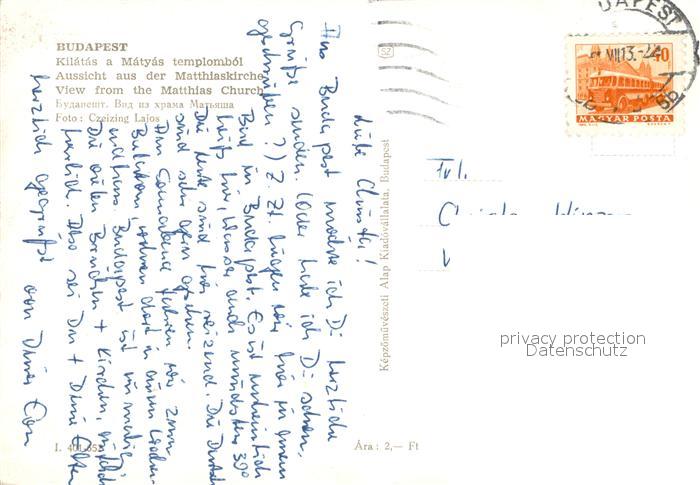 BUDAPEST
Kilátás a Mátyás templomból
Aussicht aus der Matthiaskirche
View from the Matthias Church
Будапешт. Вид из храма Матьяша
Foto: Czeizing Lajos
Liebe Christi!
Aus Budapest möchte ich Dir herzliche
Grüße senden. (Oder habe ich Dir schon
geschrieben?) Z. Zt. liegen wir hier in einem
Bad in Budapest. Es ist
heiß hier, Wasser auch mindestens 39°
Die Leute sind hier reizend. Die Deutschen
sind sehr gern gesehen.
Am Sonnabend fahren wir zum
Balaton, wohnen dort in einem
Budapest ist
Die vielen Brücken + Kirchen, einfach
herrlich. Also sei Du + Deine Eltern
herzlich gegrüßt von Deiner
I. 401,352
Ára: 2,— Ft
Képzőművészeti Alap Kiadóvállalata, Budapest
SZ
BUDAPEST
VIII 13.
40
MAGYAR POSTA
Frl.
privacy protection
Datenschutz